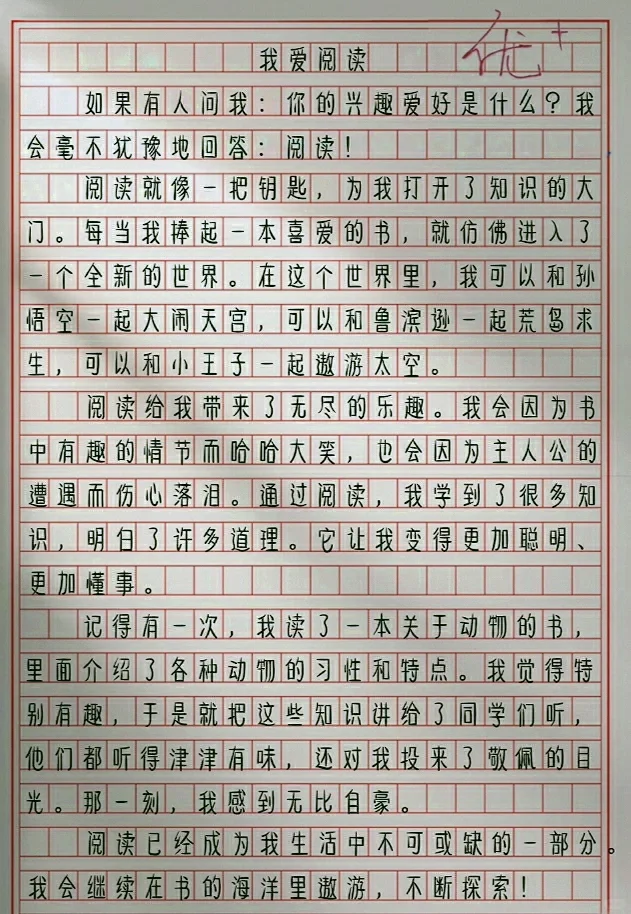 优+
我爱阅读
如果有人问我：你的兴趣爱好是什么？我
会毫不犹豫地回答：阅读！
阅读就像一把钥匙，为我打开了知识的大
门。每当我捧起一本喜爱的书，就仿佛进入了
一个全新的世界。在这个世界里，我可以和孙
悟空一起大闹天宫，可以和鲁滨逊一起荒岛求
生，可以和小王子一起遨游太空。
阅读给我带来了无尽的乐趣。我会因为书
中有趣的情节而哈哈大笑，也会因为主人公的
遭遇而伤心落泪。通过阅读，我学到了很多知
识，明白了许多道理。它让我变得更加聪明、
更加懂事。
记得有一次，我读了一本关于动物的书，
里面介绍了各种动物的习性和特点。我觉得特
别有趣，于是就把这些知识讲给了同学们听，
他们都听得津津有味，还对我投来了敬佩的目
光。那一刻，我感到无比自豪。
阅读已经成为我生活中不可或缺的一部分。
我会继续在书的海洋里遨游，不断探索！